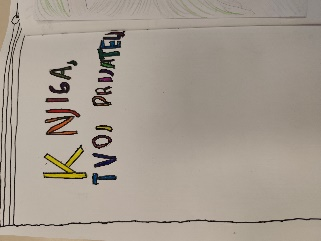 KNJIGA,
TVOJ PRIJATELJ